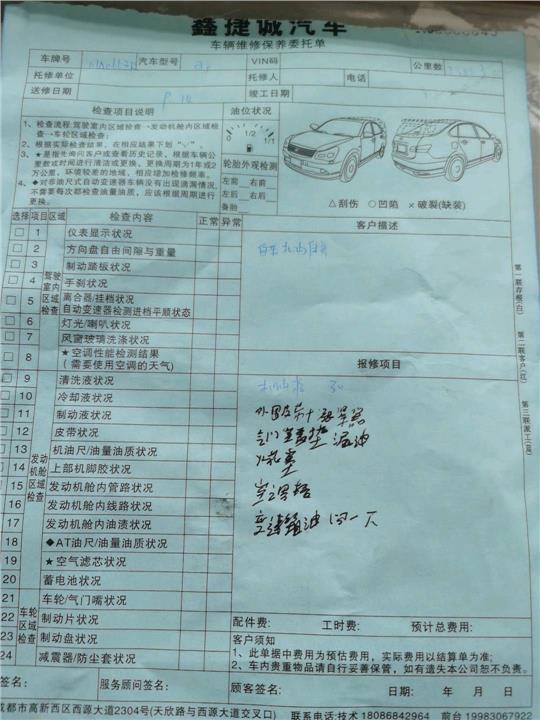 鑫捷诚汽车
车辆维修保养委托单
车牌号 汽车型号 VIN码 公里数
托修单位 托修人 电话
送修日期 竣工日期
检查项目说明 油位状况
1、检查流程:驾驶室内区域检查→发动机舱内区域检查→车轮区域检查;
2、根据实际检查结果,在相应结果下划"√"。
3、★是指先询问客户或查看历史记录。根据车辆公里数或时间进行清洁或当更换。更换周期为1年或2万公里,环境较差的地域,相应增加检修频率。
4、◆对非油尺式自动变速器车辆没有出现滴漏情况,不需要每次都检查油量油质,应该根据周期进行更换。
1/2 1/1
轮胎外观检测
左前 右前
左后 右后
备胎
△刮伤 ○凹陷 ×破裂(缺装)
选择 项目 区域 检查内容 正常 异常 客户描述
驾驶室内区域检查
1 仪表显示状况
2 方向盘自由间隙与重量
3 制动踏板状况
4 手刹状况
5 离合器/挂档状况
自动变速器检测进档平顺状态
6 灯光/喇叭状况
7 风窗玻璃洗涤状况
8 ★空调性能检测结果
(需要使用空调的天气)
报修项目
发动机舱区域检查
9 清洗液状况
10 冷却液状况
11 制动液状况
12 皮带状况
13 机油尺/油量油质状况
14 上部机脚胶状况
15 发动机舱内管路状况
16 发动机舱内线路状况
17 发动机舱内油渍状况
18 ◆AT油尺/油量油质状况
19 ★空气滤芯状况
20 蓄电池状况
车轮区域检查
21 车轮/气门嘴状况
22 制动片状况
23 制动盘状况
24 减震器/防尘套状况
30
漏油
配件费: 工时费: 预计总费用:
客户须知
1、此单据中费用为预估费用,实际费用以结算单为准;
2、车内贵重物品请自行妥善保管,如有遗失本公司恕不负责。
签名: 服务顾问签名: 顾客签名: 日期: 年 月 日
成都市高新西区西源大道2304号(天欣路与西源大道交叉口) 联系电话:技术 18086842964 前台 19983067922
第一联存根(白)
第二联客户(红)
第三联派工(蓝)